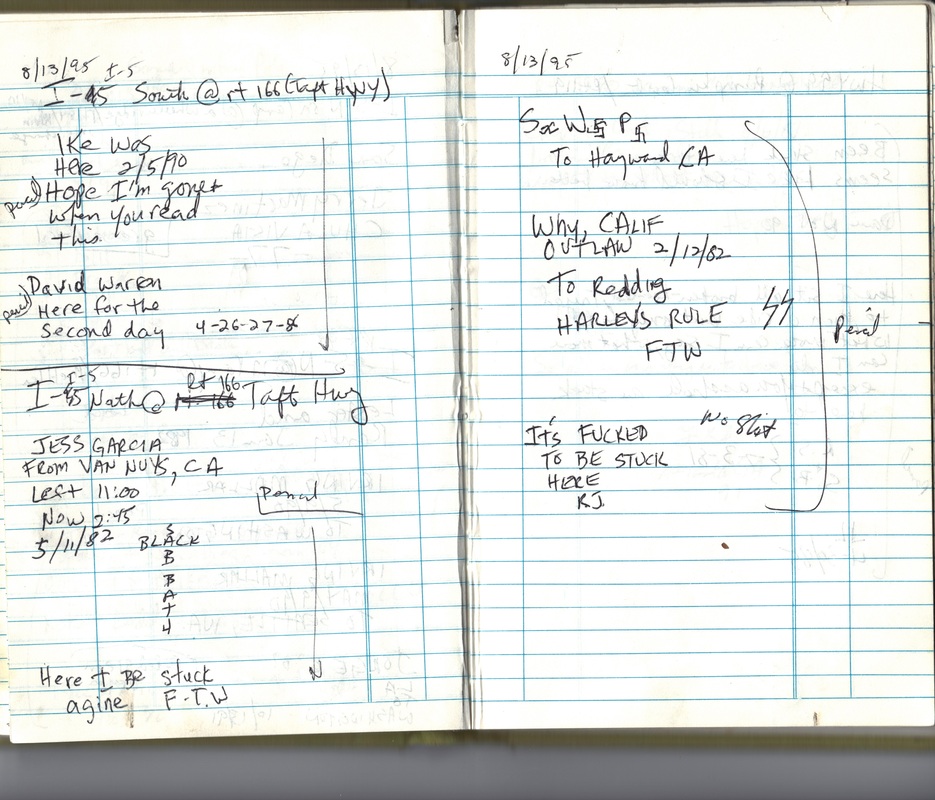 8/13/95 I-5
I-45 South @ rt 166 (Taft Hwy)
IKe was
Here 2/5/90
pencil) Hope I'm gone
when you read
this.
pencil) David Warren
Here for the
Second day 4-26-27-8
I-5 Rt 166
I-45 North @ Rt. 166 Taft Hwy
JESS GARCIA
FROM VAN NUYS, CA
Left 11:00
Pencil
Now 2:45
5/11/82
S
BLACK
B
B
A
T
4
Here I Be stuck
agine F-T.W
8/13/95
W卐 P卐
To Hayward CA
Why, CALIF
OUTLAW 2/12/82
To Redding
HARLEYS RULE ϟϟ
Pencil
FTW
No Shit
It's FUCKED
TO BE STUCK
HERE
RJ.